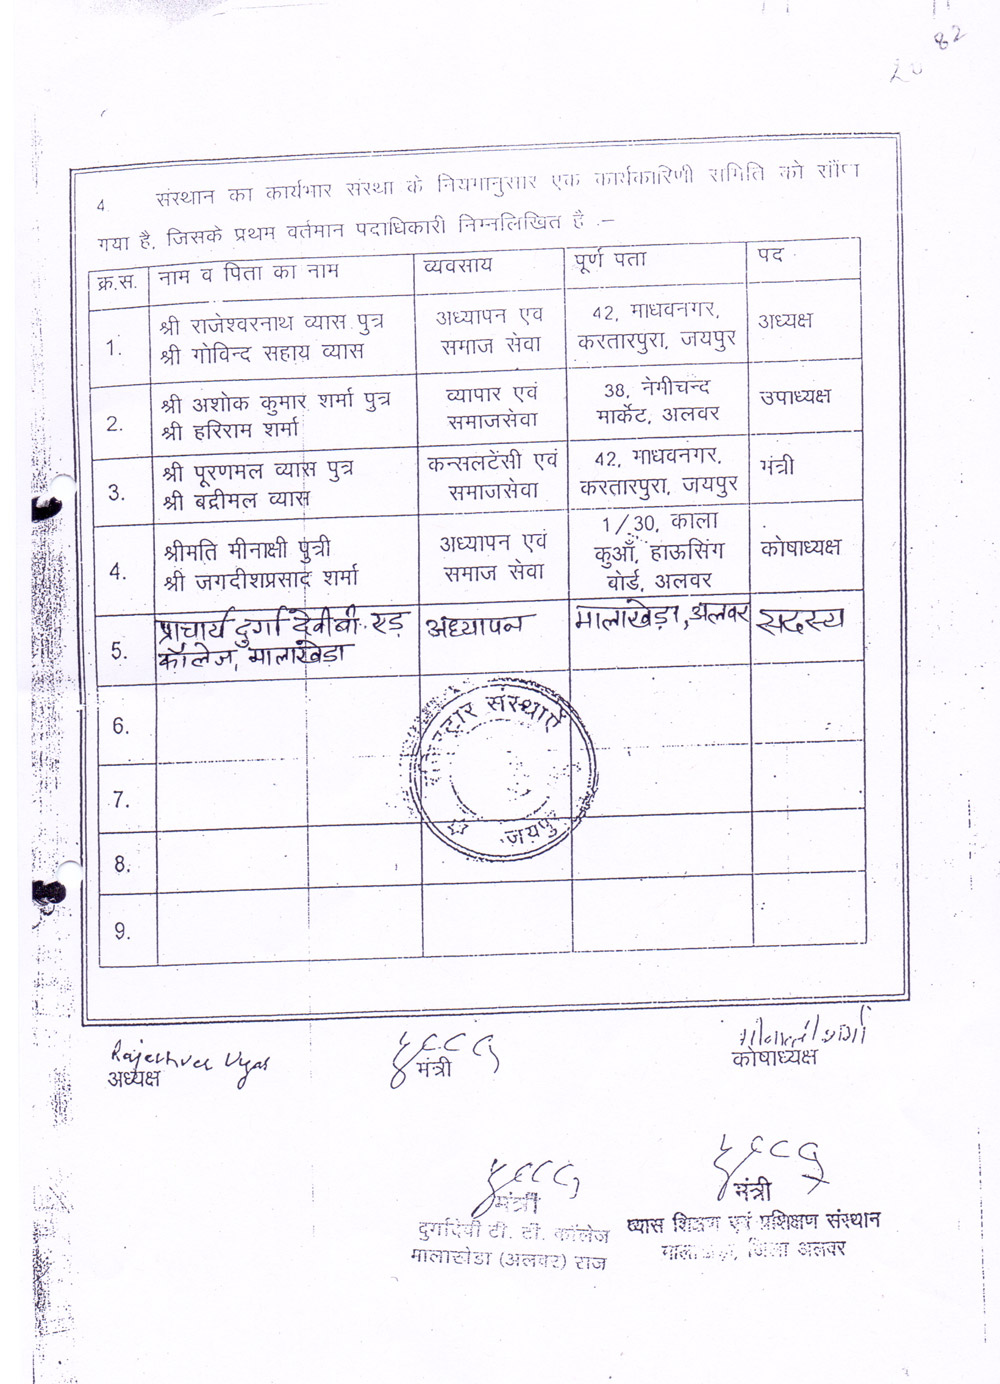 82
20
4 संस्थान का कार्यभार संस्था के नियमानुसार एक कार्यकारिणी समिति को सौंपा
गया है, जिसके प्रथम वर्तमान पदाधिकारी निम्नलिखित है :-
क्र.स. नाम व पिता का नाम व्यवसाय पूर्ण पता पद
1. श्री राजेश्वरनाथ व्यास पुत्र अध्यापन एव 42, माधवनगर, अध्यक्ष
श्री गोविन्द सहाय व्यास समाज सेवा करतारपुरा, जयपुर
2. श्री अशोक कुमार शर्मा पुत्र व्यापार एवं 38, नेमीचन्द उपाध्यक्ष
श्री हरिराम शर्मा समाजसेवा मार्केट, अलवर
3. श्री पूरणमल व्यास पुत्र कन्सलटेंसी एवं 42, माधवनगर, मंत्री
श्री बद्रीमल व्यास समाजसेवा करतारपुरा, जयपुर
4. श्रीमति मीनाक्षी पुत्री अध्यापन एवं 1/30, काला कोषाध्यक्ष
श्री जगदीशप्रसाद शर्मा समाज सेवा कुआँ, हाऊसिंग
बोर्ड, अलवर
5. प्राचार्य दुर्गा देवी बी. एड़ अध्यापन मालाखेड़ा, अलवर सदस्य
कॉलेज, मालाखेड़ा
6.
7.
8.
9.
संस्थाऐं
जयपुर
Rajeshver Vyas
अध्यक्ष
मंत्री
कोषाध्यक्ष
मंत्री
दुर्गादेवी टी. टी. कॉलेज
मालाखेडा (अलवर) राज
मंत्री
व्यास शिक्षण एवं प्रशिक्षण संस्थान
मालाखेड़ा, जिला अलवर